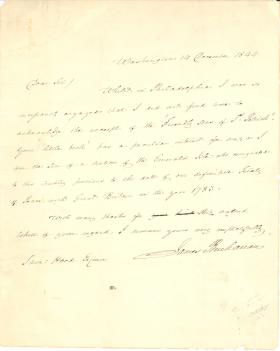 Washington 14 December 1844
Dear Sir/
Whilst in Philadelphia I was so
engaged that I did not find time to
acknowledge the receipt of the "Friendly Sons of St. Patrick".
Your little book has a peculiar interest for me, as I
am the son of a native of the Emerald Isle who emigrated
to this country previous to the date of our definitive Treaty
of Peace with Great Britain in the year 1783.
With many thanks for this
token of your regard, I remain yours very respectfully,
James Buchanan
Saml: Hood Esquire